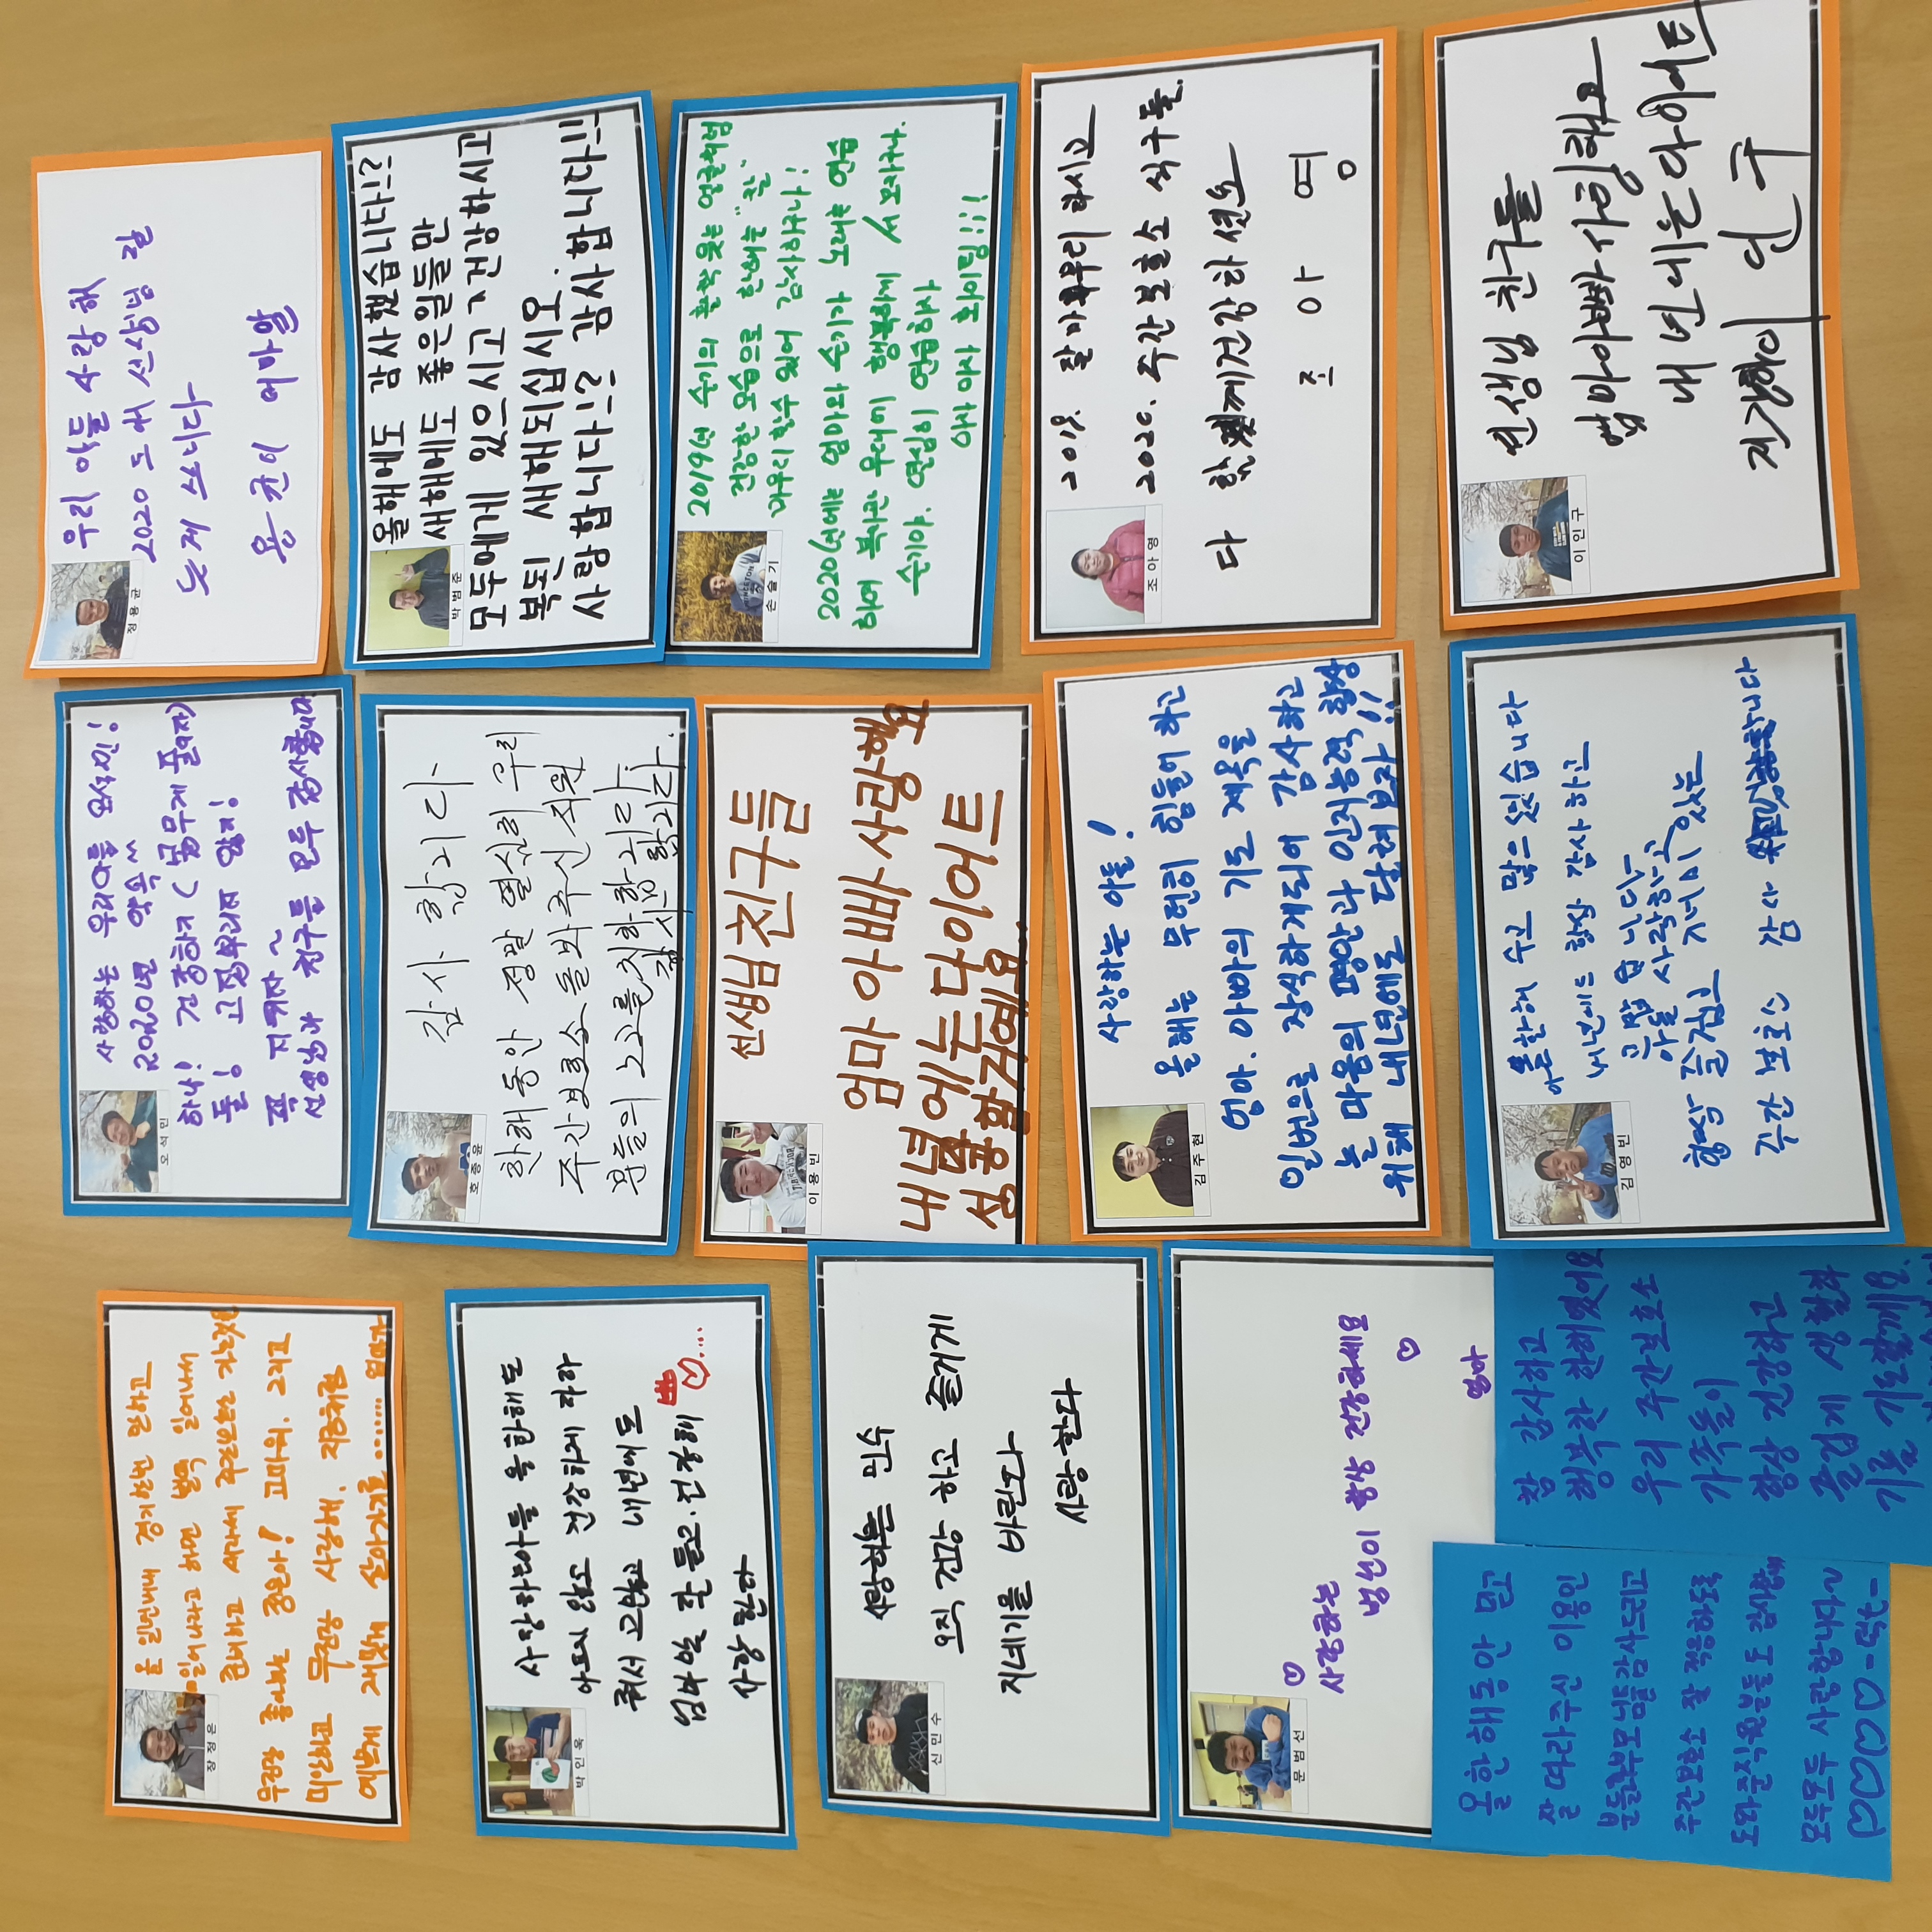 우리 아들 사랑해
2020 도 새 선생님 말
듣게 쓰니다
용균이 에마알
정용균
올해에도 감사했습니다!?
새해에도 좋은일들만
모두에게 있으시고 건강하시고
복돈 새해되십시요.
사랑합니다!? 감사합니다!!!
박범준
2019년 슬기의 활짝 웃는 얼굴처럼
건강한 모습으로 한해는 "잘"
마무리 할수 있어 감사하구나!
2020년에는 엄마와 슬기가 노래는 연습
하여 복지관 무대에 행복하게 서 보자구나.
슬기야. 열심히 연습하자
아자 아자 화이팅!!!
손슬기
2019. 잘 마무리 하시고
2020. 주간보호소 식구들.
다 함께건강하션요
조 아 영
조아영
선생님 친구들
엄마아빠사랑해요
내년에는다이어트
이 인 구
이인구
사랑하는 우리아들 오석민!
2020년 약속
하나! 건강하기 (몸무게 줄이자)
둘! 고집부리지 않기!
꼭 지키자~
선생님과 친구들 모두 감사합니다
오석민
감사 합니다
한해동안 정말 열심히 우리
주간보호소 돌봐주신 직원
분들의 노고를 치하합니다.
감사 합니다.
호종윤
선생님 친구들
엄마 아빠 사랑해요
내년에는다이어트
성공할거예요...
이용빈
사랑하는 아들!
올해는 무던히 힘들어 하고
엄마.아빠의 기도 제목을
일번으로 장식하게되어 감사하고
늘 마음의 평안과 인지능력 향상
위해 내년에도 달려보자!!
김주현
올한해 수고 많으셨습니다
내년에는 항상 감사하고
고맙습니다~
아들 사랑한다~
항상 즐겁고 재미있는
주간보호소 감사
김영빈
올 일년내내 결기한번 안하고
일어나라고 하면 벌떡 일어나서
준비하고 나가서
무진장 좋아하는 정은아! 고마워. 그리고
미안하고 무진장 사랑해. 지금처럼
예쁘게 재밌게 살아가기를...... 엄마가
장정은
사랑하는아들 올한해도
아프지 않고 건강하게 자라
줘서 고맙고 내년에도
엄마말 잘 듣고. 건강해 ...
사랑한다
박인욱
사랑하는 민수
오직 건강 하고 즐겁게
지내기를 바란다
사랑한다
신민수
사랑하는
범선이 항상 건강하세요
엄마
문범선
참 감사하고
행복한 한해였어요
우리 주간보호소
가족들이
항상 건강하고
즐겁게 생활하
기를 기도할께요.
올 한해동안 믿고
잘 따라주신 이용인
분들과부모님들감사드리고
주간보호소 잘 적응하도록
도와준직원분들도 감사해
모두모두 사랑합니다~